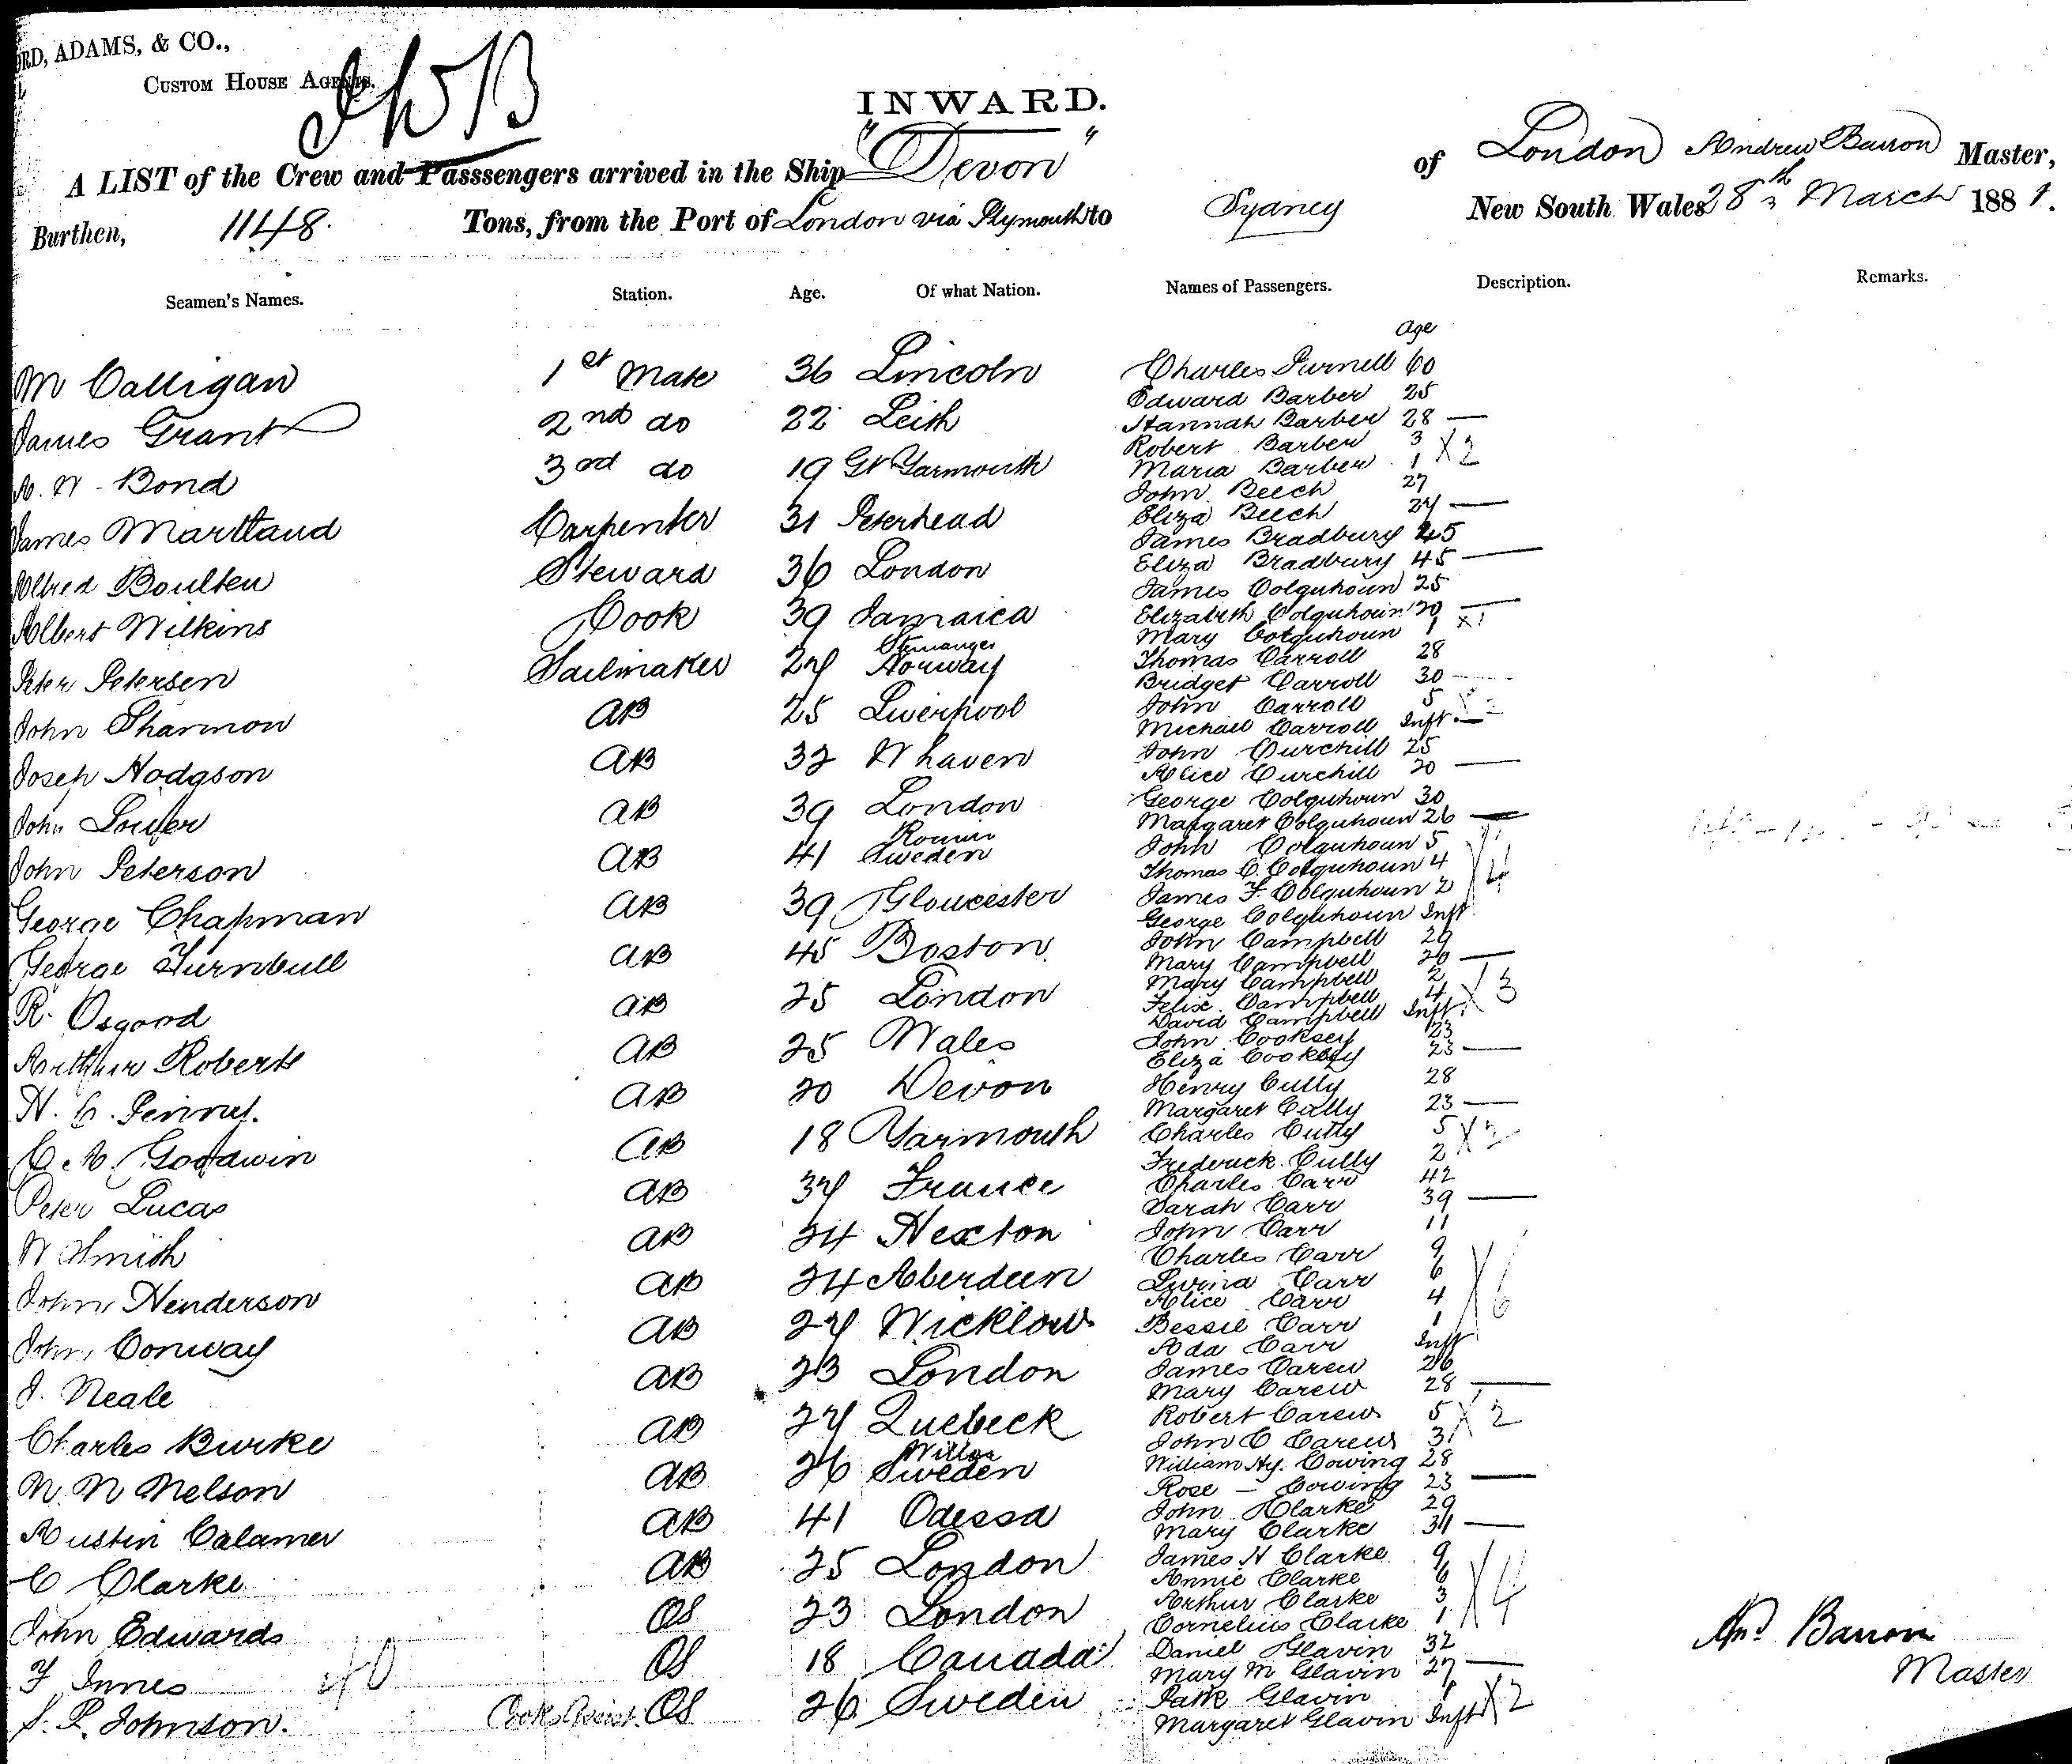 RD, ADAMS, & CO.,
CUSTOM HOUSE AGENTS.
INWARD.
A LIST of the Crew and Passsengers arrived in the Ship "Devon" of London Andrew Barron Master,
Burthen, 1148. Tons, from the Port of London via Plymouth to Sydney New South Wales 28th March 1881.
Seamen's Names. Station. Age. Of what Nation. Names of Passengers. Description. Remarks.
Age
M Calligan 1st Mate 36 Lincoln
James Grant 2nd do 22 Leith
A. W. Bond 3rd do 19 Gt Yarmouth
James Maitland Carpenter 31 Peterhead
Alfred Boulten Steward 36 London
Albert Wilkins Cook 39 Jamaica
Peter Petersen Sailmaker 24 Norway
John Sharmon AB 25 Liverpool
Joseph Hodgson AB 32 Whaven
John AB 39 London
John Peterson AB 41 Sweden
George Chapman AB 39 Gloucester
George Turnbull AB 45 Boston
R. Osgood AB 25 London
Arthur Roberts AB 25 Wales
H. C. Penny. AB 20 Devon
C. A. Goodwin AB 18 Yarmouth
Peter Lucas AB 34 France
W Smith AB 24 Hexton
John Henderson AB 24 Aberdeen
John Conway AB 24 Wicklow
J. Neale AB 23 London
Charles Burke AB 24 Quebeck
N. N Nelson AB 26 Sweden
Austin Calamer AB 41 Odessa
C Clarke AB 25 London
John Edwards OS 23 London
F Innes OS 18 Canada
S. P. Johnson. Cooks Assist. OS 26 Sweden
40
Charles Purnell 60
Edward Barber 25
Hannah Barber 28 —
Robert Barber 3 X2
Maria Barber 1
John Beech 27
Eliza Beech 24 —
James Bradbury 45
Eliza Bradbury 45 —
James Colquhoun 25
Elizabeth Colquhoun 20 —
Mary Colquhoun 1 X1
Thomas Carroll 28
Bridget Carroll 30
John Carroll 5
Michael Carroll Inft. —
John Churchill 25
Alice Churchill 20 —
George Colquhoun 30
Margaret Colquhoun 26 —
John Colquhoun 5
Thomas C. Colquhoun 4 X4
James F. Colquhoun 2
George Colquhoun Inft.
John Campbell 29
Mary Campbell 26 —
Mary Campbell 2
Felix Campbell 4 X3
David Campbell Inft.
John Cooksey 23
Eliza Cooksey 23 —
Henry Cully 28
Margaret Cully 23 —
Charles Cully 5 X2
Frederick Cully 2
Charles Carr 42
Sarah Carr 39 —
John Carr 11
Charles Carr 9
Carr 6
Alice Carr 4 X6
Bessie Carr 1
Ada Carr Inft
James Carew 26
Mary Carew 28 —
Robert Carew 5 X2
John C Carew 3
William Hy. Cowing 28
Rose — Cowing 23 —
John Clarke 29
Mary Clarke 31 —
James H Clarke 9
Annie Clarke 6 X4
Arthur Clarke 3
Cornelius Clarke 1
Daniel Glavin 32
Mary M Glavin 27 —
Patk Glavin 1 X2
Margaret Glavin Inft
And. Barron
Master